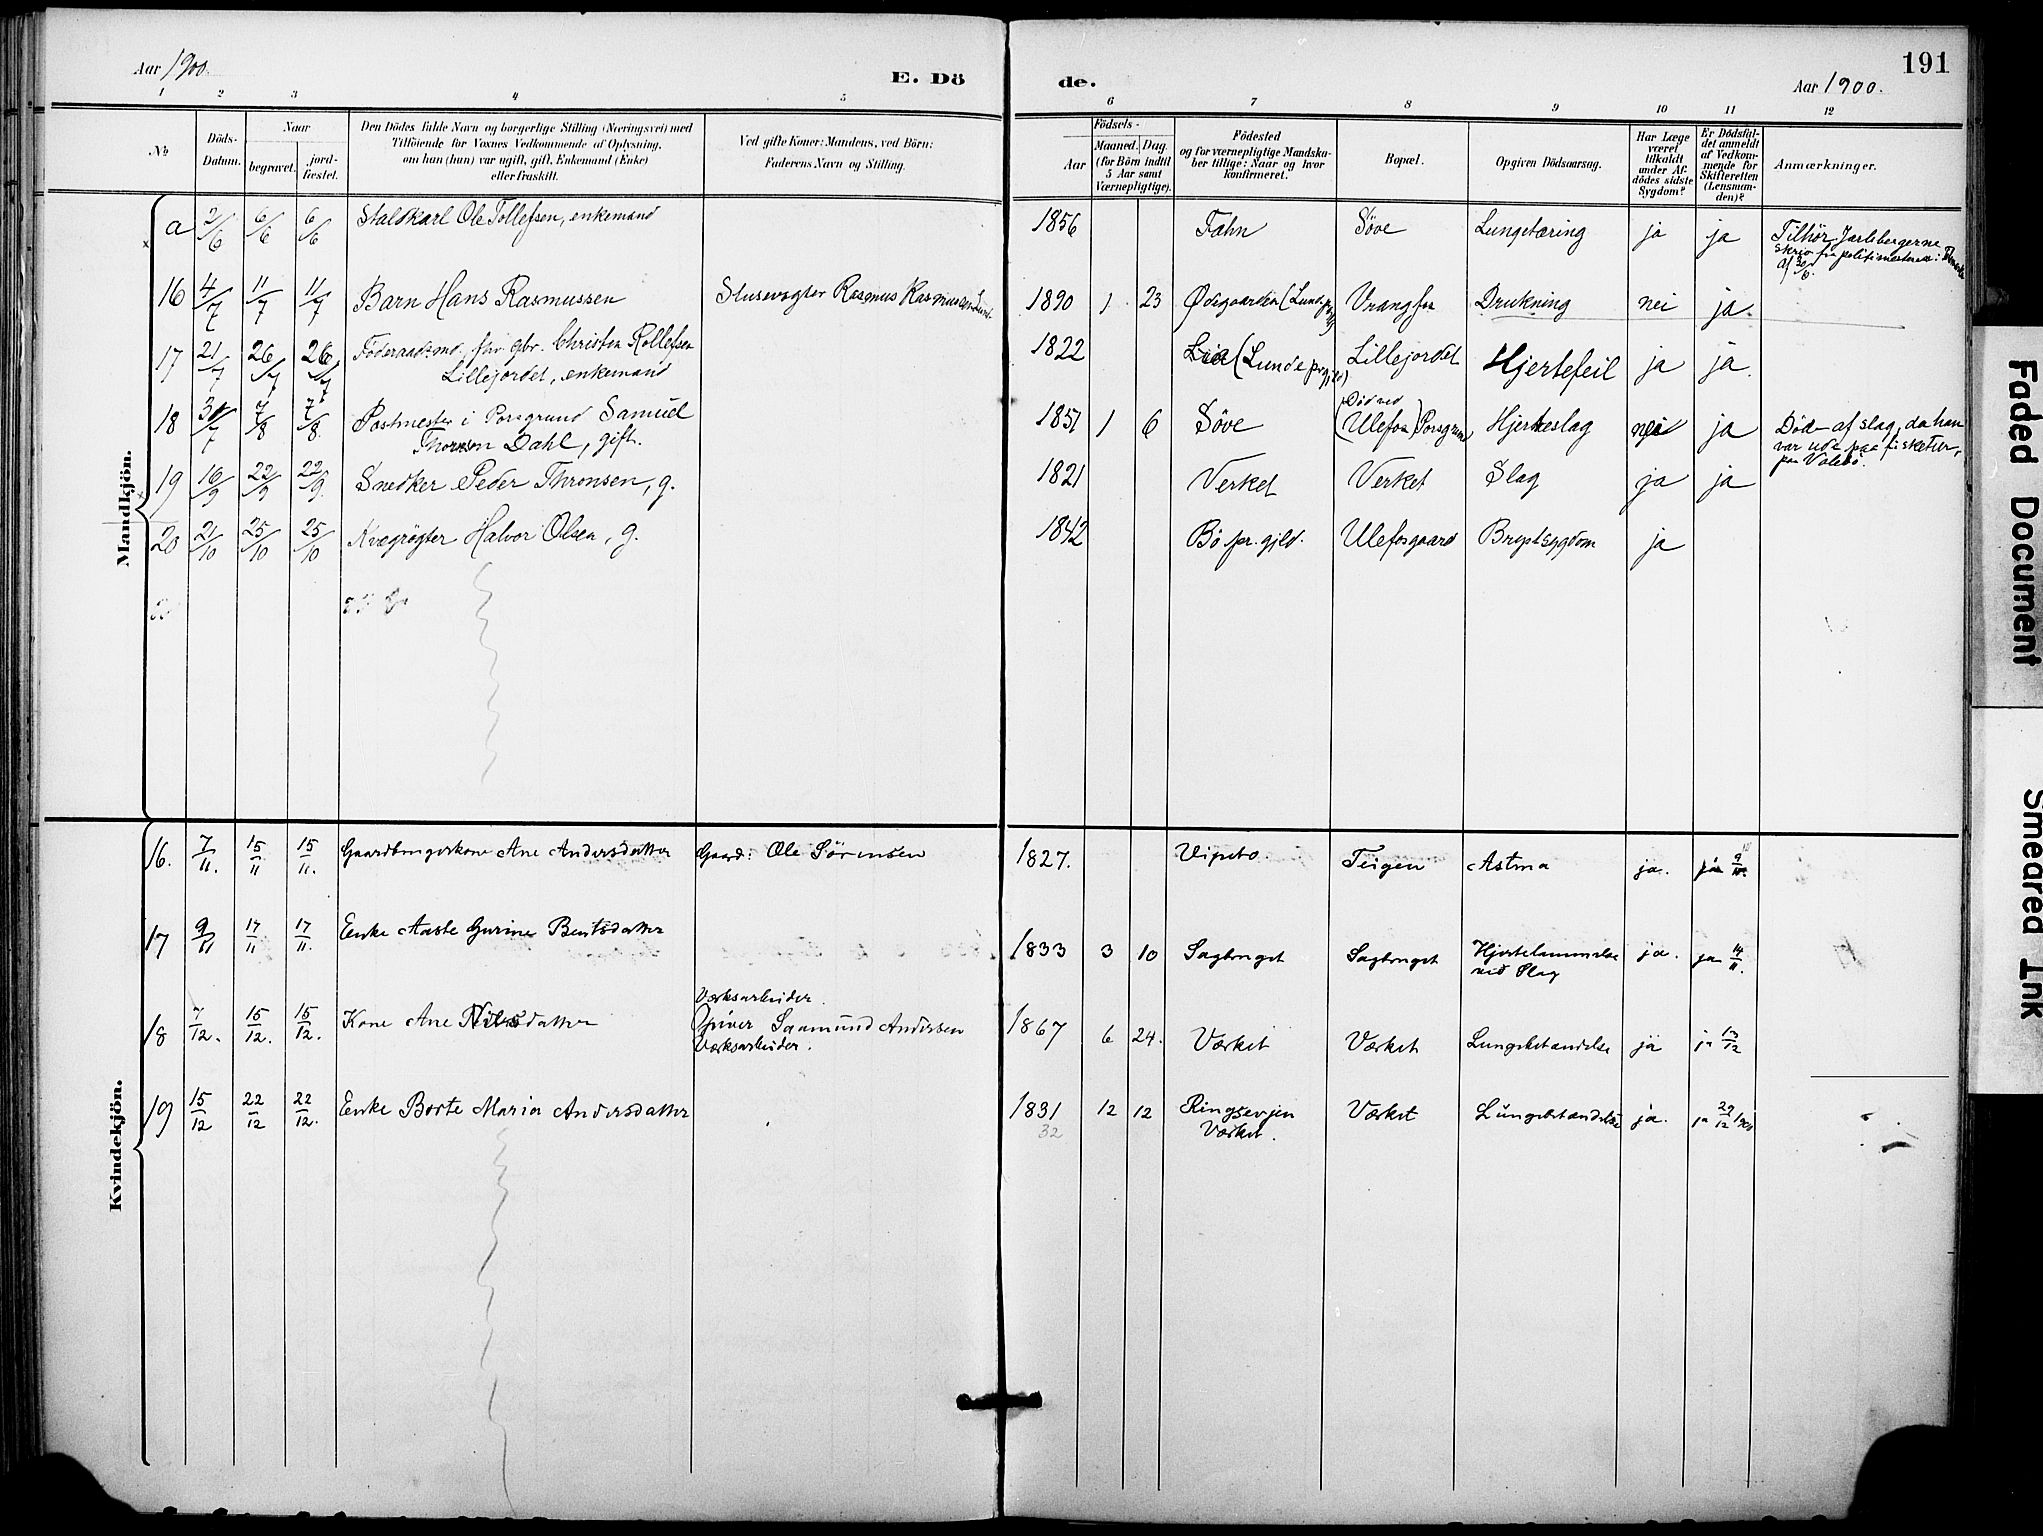 Aar 1900.
E. Dö
de.
Aar 1900.
191
1 2 3 4 5 6 7 8 9 10 11 12
No
Döds-Datum.
Naar
begravet.
jord-fæstet.
Den Dödes fulde Navn og borgerlige Stilling (Næringsvei) med
Tilföiende for Voxnes Vedkommende af Oplysning,
om han (hun) var ugift, gift, Enkemand (Enke)
eller fraskilt.
Ved gifte Koner: Mandens, ved Börn:
Faderens Navn og Stilling.
Födsels-
Aar
Maaned. Dag.
(for Börn indtil
5 Aar samt
Værnepligtige).
Födested
og for værnepligtige Mandska-
ber tillige: Naar og hvor
konfirmeret.
Bopæl.
Opgiven Dödsaarsag.
Har Læge
været
tilkaldt
under Af-
dödes sidste
Sygdom?
Er Dödsfal-
det anmeldt
af Vedkom-
mende for
Skifteretten
(Lensman-
den)?
Anmærkninger.
Mandkjön.
a 2/6 6/6 6/6 Staldkarl Ole Tollefsen, enkemand 1856 Fahn Söve Lungetæring ja ja Tilhör Jarlsbergerne
af 30/6.
16 4/7 11/7 11/7 Barn Hans Rasmussen Slusevogter Rasmus Rasmussen 1890 1 23 Ödegaarden (Lunde Vrangfos Drukning nei ja
17 21/7 26/7 26/7 Föderaadsmd. fhv. gbr. Christen Rollefsen
Lillejordet, enkemand 1822 Lia (Lunde prgjld) Lillejordet Hjertefeil ja ja.
18 30/7 7/8 7/8 Postmester i Porsgrund Samuel
Dahl, gift. 1851 1 6 Söve (Död ved
Ulefos) Porsgrund Hjerteslag nei ja Död af slag, da han
var ude paa fisketur,
paa Valebö.
19 16/9 22/9 22/9 Snedker Peder Thronsen, g. 1821 Verket Verket Slag ja ja
20 21/10 25/10 25/10 Kvægrögter Halvor Olsen, g. 1842 Bö pr.gjld. Ulefosgaard Brystsygdom ja
Kvindekjön.
16. 7/11. 15/11 15/11. Gaardbrugerkone Ane Andersdatter Gaard: Ole Sörensen 1827. Vipeto. Teigen Astma ja. ja 9/11.
17 9/11 17/11 17/11. Enke Aaste Gurine Bentsdatter 1833 3 10 Sagbruget Sagbruget Hjertelammelse
ved Slag ja. ja 14/11.
18 7/12. 15/12. 15/12. Kone Ane Nilsdatter Værksarbeider.
Saamund Andersen
Værksarbeider. 1867 6 24. Værket Værket Lungebetændelse ja ja 13/12
19 15/12 22/12 22/12. Enke Borte Maria Andersdatter 1831
32 12 12 Ringsevjen
Værket. Værket Lungebetændelse ja. ja 29/12 1900
Faded Document
Smeared Ink